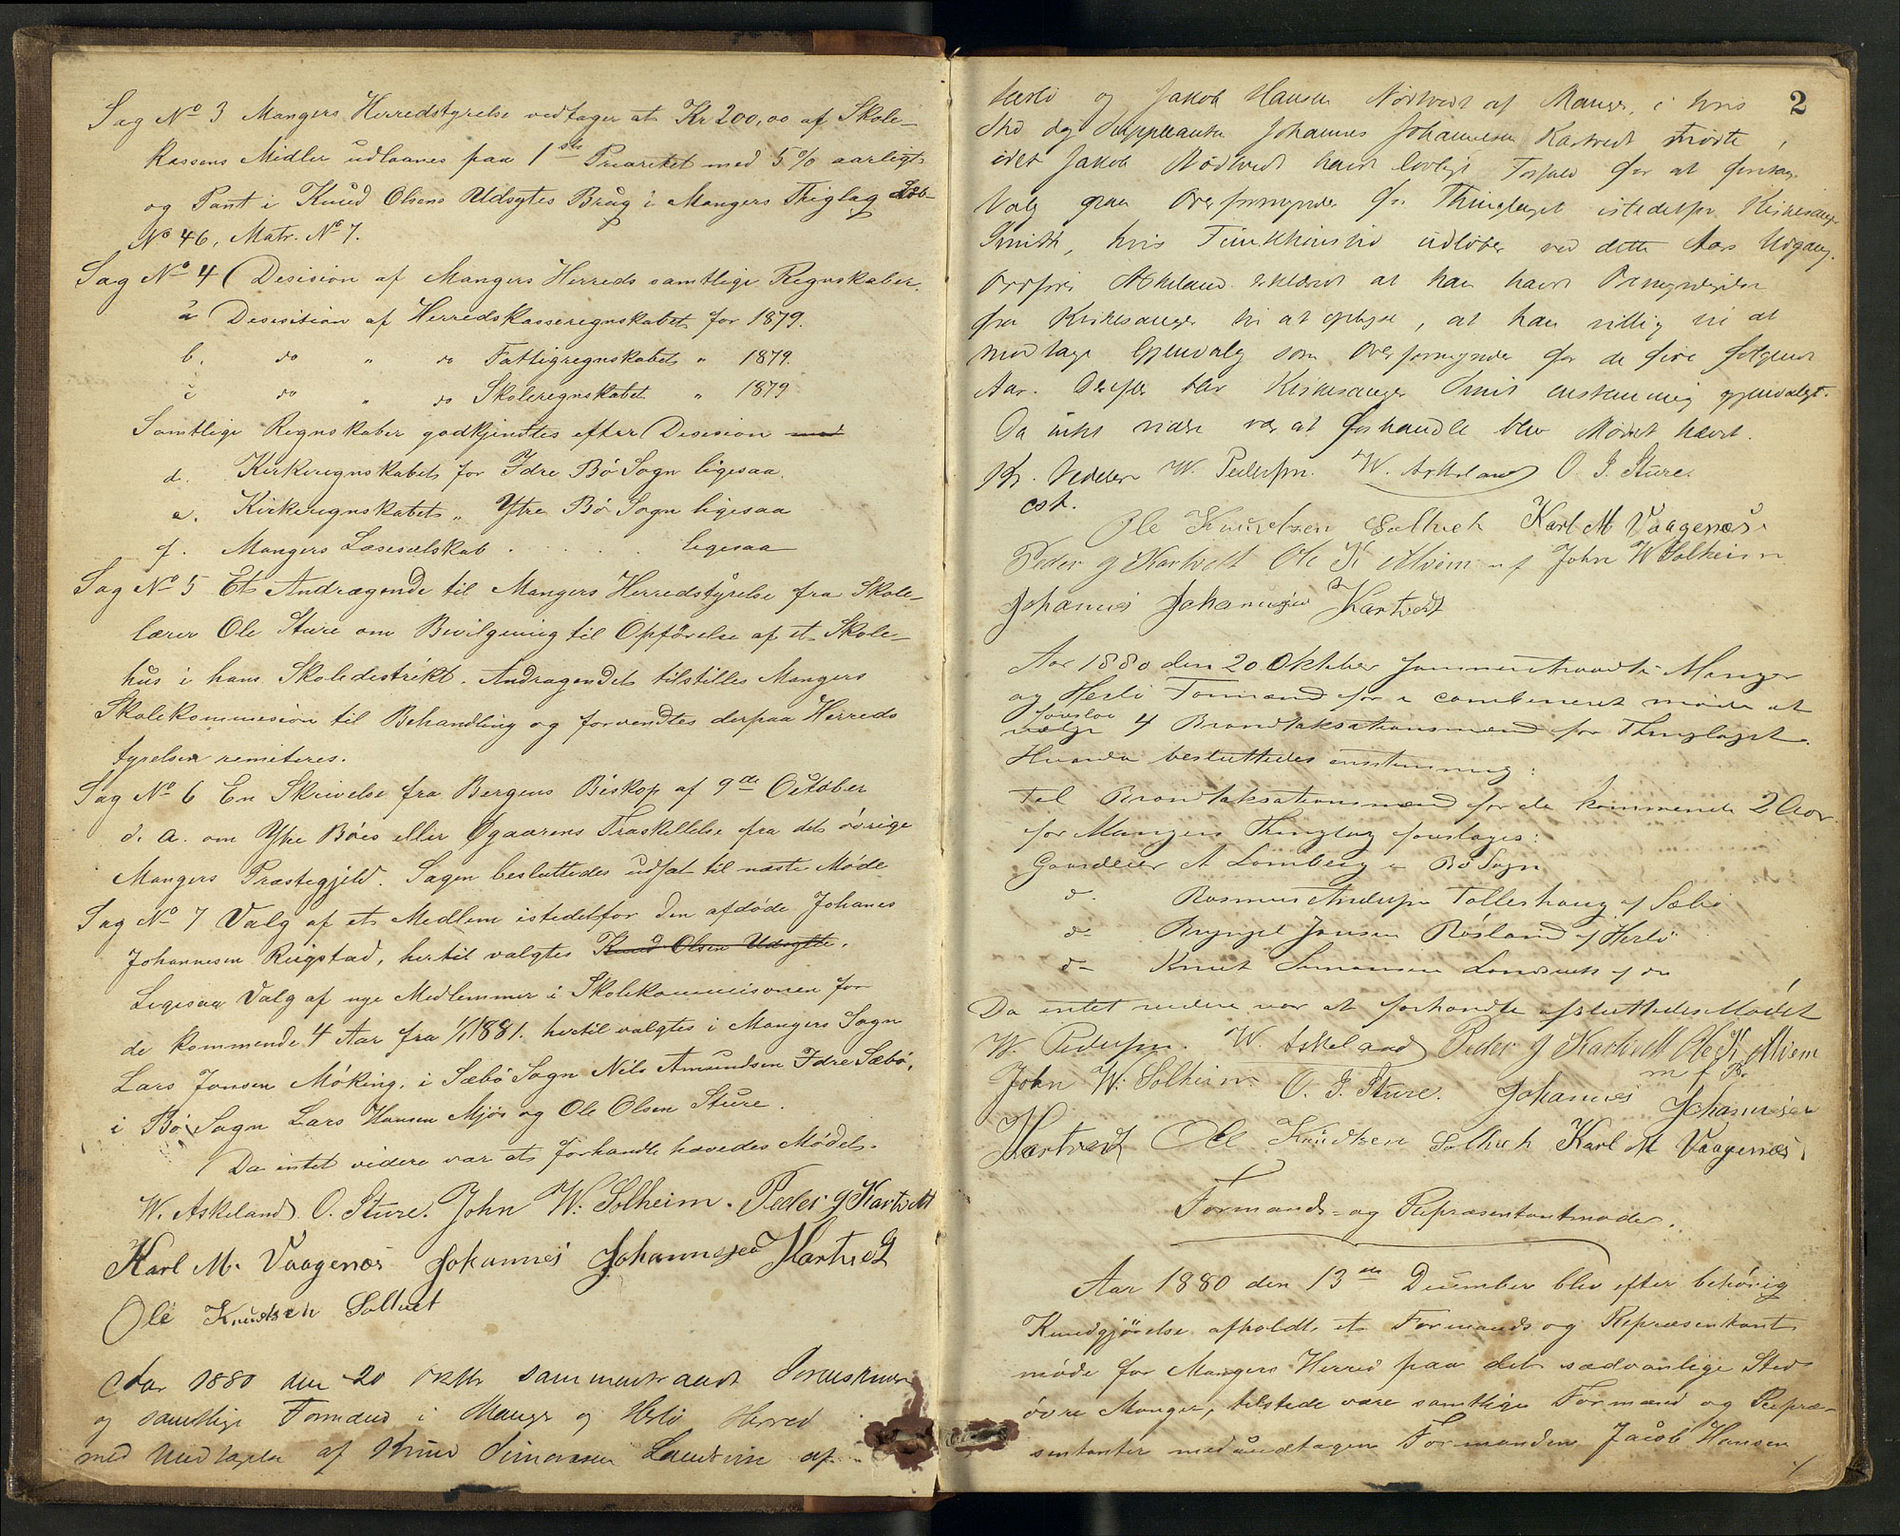 Sag No 3 Mangers Herredstyrelse vedtager at Kr 200,00 af Skole-
kassens Midler udlaanes paa 1ste Prioritet med 5% aarligt
og Pant i Knud Olsens Udsygtes Brug i Mangers Thiglag Løb-
No 46, Matr. No 7.
Sag No 4 Desision af Mangers Herreds samtlige Regnskaber.
a Desisition af Herredskasseregnskabet for 1879.
b. do " do Fattigregnskabet " 1879.
c do " do Skoleregnskabet " 1879
Samtlige Regnskaber godkjendtes efter Desision med
d. Kirkeregnskabet for Idre Bø Sogn ligesaa.
e. Kirkeregnskabet " Ytre Bø Sogn ligesaa
f. Mangers Læseselskab . . . . . ligesaa
Sag No 5 Et Andragende til Mangers Herredstyrelse fra Skole-
lærer Ole Sture om Bevilgning til Opførelse af et Skole-
hus i hans Skoledestrikt. Andragendet tilstilles Mangers
Skolekommission til Behandling og forventes derpaa Herreds
tyrelsen remiteres.
Sag No 6 En Skrivelse fra Bergens Biskop af 9de October
d. a. om Ytre Bøes eller Øgaarens Fraskillelse fra det øvrige
Mangers Præstegjeld. Sagen besluttedes udsat til næste Møde
Sag No 7 Valg af et Medlem istedetfor den afdøde Johanes
Johannesen Rigstad, hertil valgtes Knud Olsen Udsygte.
Ligesaa Valg af nye Medlemmer i Skolekommisionen for
de kommende 4 Aar fra 1/1 1881. hertil valgtes i Mangers Sogn
Lars Jonsen Møking, i Sæbø Sogn Nils Amundsen Idre Sæbø,
i Bø Sogn Lars Hansen Mjøs og Ole Olsen Sture.
Da intet videre var at forhandle hævedes Mødet.
W. Askeland O. Sture. John W: Solheim. Peder J Kartvedt
Karl M. Vaagenæs Johannes Johannesen Kartvedt
Ole Knudtsen Soltvet
Aar 1880 den 20 Oktbr sammentraadt
og samtlige Formænd i Manger og Herlø Herred
med Undtagelse af Knud Simonsen Landsvik af
2
Herlø og Jakob Hansen Nødtvedt af Manger, i hvis
Sted dog Suppleanten Johannes Johannesen Kartvedt mødte,
idet Jakob Nødtvedt havde lovligt Forfald for at foretage
Valg paa Overformynder for Thinglaget istedetfor Kirkesanger
Smith, hvis Funktionstid udløber ved dette Aars Udgang.
Ordfører Askeland erklæred at han havde Bemyndigelse
fra Kirkesanger til at oplyse, at han villig til at
modtage Gjenvalg som Overformynder for de fire følgende
Aar. Derefter blev Kirkesanger Smit enstemmig gjenvalgt.
Da intet videre var at forhandle blev Mødet hævet.
W. Pedersen. W. Askeland O. J. Sture.
cst.
Ole Knudtsen Soltvet Karl M Vaagenæs.
Peder J Kartvedt Ole K Alvem m f John W Solheim
Johannes Johannesen Kartvedt
Aar 1880 den 20 Oktober sammentraadte Manger
og Herlø Formænd for i combineret møde at
foreslaa
vælge 4 Brandtaksationsmænd for Thinglaget.
Hvorda besluttedes enstemmig:
Til Brandtaksationsmænd for de kommende 2 Aar
for Mangers Thinglag foreslages:
Gaardeier A Lomberg i Bø Sogn
d. Rasmus Andersen Tolleshaug af Sæbø
d. Brynjel Jansen Røsland af Herlø
d- Knut Simonsen Landsvik af do
Da intet videre var at forhandle afsluttedes Mødet
W. Pedersen. W. Askeland Peder J Kartvedt Ole K Alvem
m f P.
John W: Solheim. O. J. Sture. Johannes Johannesen
Kartvedt Ole Knudtsen Soltvedt Karl M Vaagenæs.
Formands- og Repræsentantmøder.
Aar 1880 den 13de December blev efter behørig
Kundgjørelse afholdt et Formands og Repræsentant
møde for Mangers Herred paa det sædvanlige Sted
øvre Manger, tilstede vare samtlige Formænd og Repræ-
sentanter med undtagen Formanden Jacob Hansen